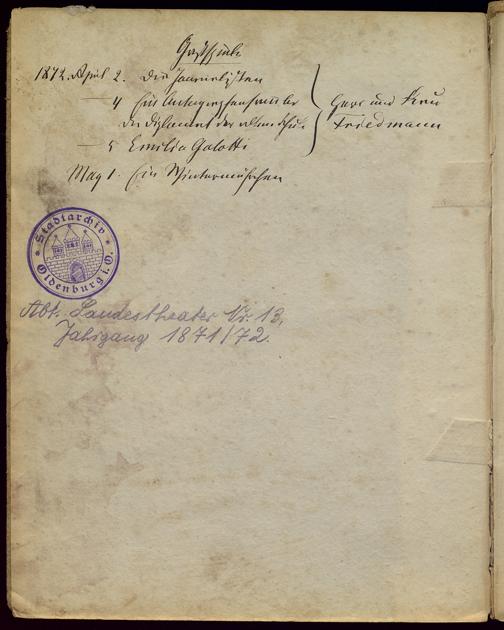 Gastspiele
1872. April 2. Die Journalisten
— 4 Ein Autographensammler
Der Diplomat der alten Schule
Herr und Frau
Friedmann
— 5 Emilia Galotti
May 1. Ein Wintermärchen
Stadtarchiv
Oldenburg i. O.
Abt. Landestheater Nr. 13,
Jahrgang 1871/72.